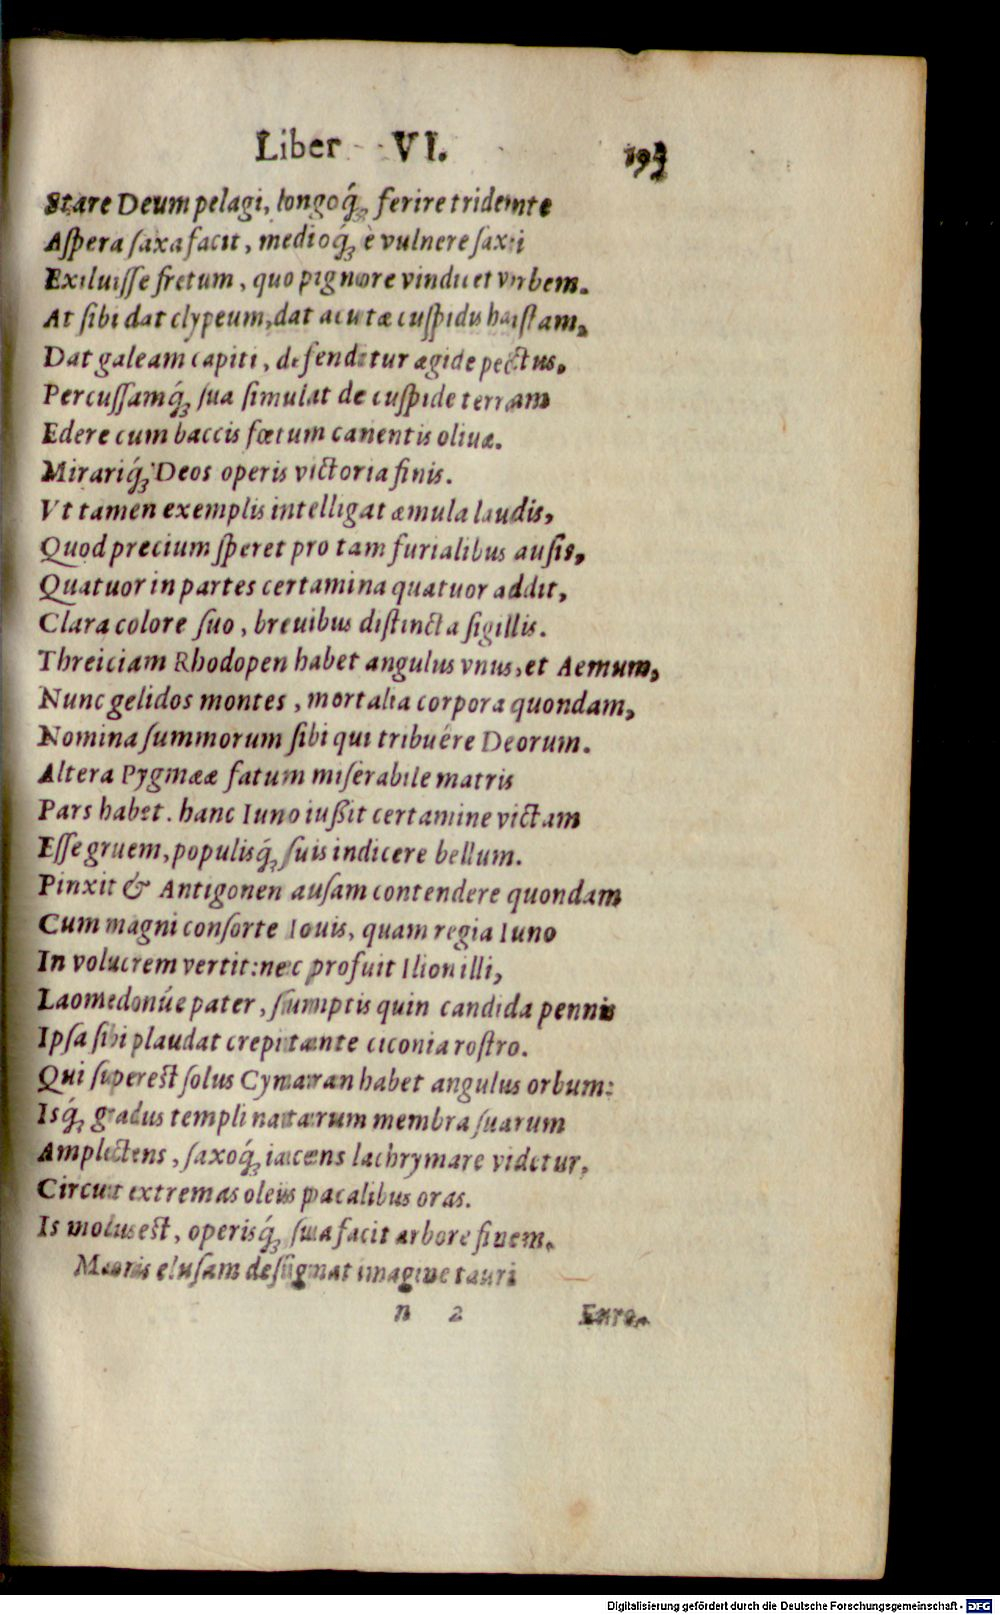 Liber VI. 193
Stare Deum pelagi, longoq́ꝫ ferire tridente
Aſpera ſaxa facit, medioq́ꝫ è vulnere ſaxi
Exiluiſſe fretum, quo pignore vindicet vrbem.
At ſibi dat clypeum, dat acutæ cuſpidis haſtam,
Dat galeam capiti, defenditur ægide pectus.
Percuſſamq́ꝫ ſua ſimulat de cuſpide terram
Edere cum baccis fœtum canentis oliuæ.
Mirariq́ꝫ Deos operis victoria finis.
Vt tamen exemplis intelligat æmula laudis,
Quod precium ſperet pro tam furialibus auſis,
Quatuor in partes certamina quatuor addit,
Clara colore ſuo, breuibus diſtincta ſigillis.
Threiciam Rhodopen habet angulus vnus, et Aemum,
Nunc gelidos montes, mortalia corpora quondam,
Nomina ſummorum ſibi qui tribuêre Deorum.
Altera Pygmææ fatum miſerabile matris
Pars habet. hanc Iuno iußit certamine victam
Eſſe gruem, populisq́ꝫ ſuis indicere bellum.
Pinxit & Antigonen auſam contendere quondam
Cum magni conſorte Iouis, quam regia Iuno
In volucrem vertit: nec profuit Ilion illi,
Laomedonúe pater, ſumptis quin candida pennis
Ipſa ſibi plaudat crepitante ciconia roſtro.
Qui ſupereſt ſolus Cymaran habet angulus orbum:
Isq́ꝫ gradus templi natarum membra ſuarum
Amplectens, ſaxoq́ꝫ iacens lachrymare videtur,
Circuit extremas oleis pacalibus oras.
Is modus eſt, operisq́ꝫ ſua facit arbore finem.
Mæonis eluſam deſignat imagine tauri
n 2 Euro-
Digitalisierung gefördert durch die Deutsche Forschungsgemeinschaft - DFG